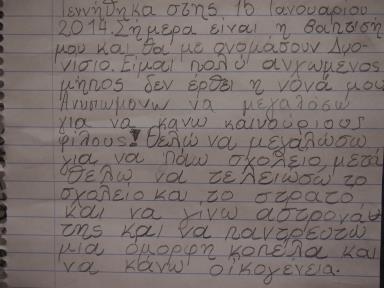 Γεννήθηκα στης 15 Ιανουαριου
2014. Σήμερα είναι η βαπτισή
μου και θα με ονομάσουν Διο-
νίσιο. Είμαι πολύ ανχωμενος
μήπος δεν έρθει η νονά μου
να μεγαλόσω
για να κάνω καινούριους
φίλους! Θελω να μεγαλωσω
για να πάω σχολειο, μετά
θελω να τελειωσω το
σχολειο και το στρατο
και να γίνω αστροναύ
της και να παντρευτώ
μια όμορφη κοπελα και
να κάνω οικογένεια.